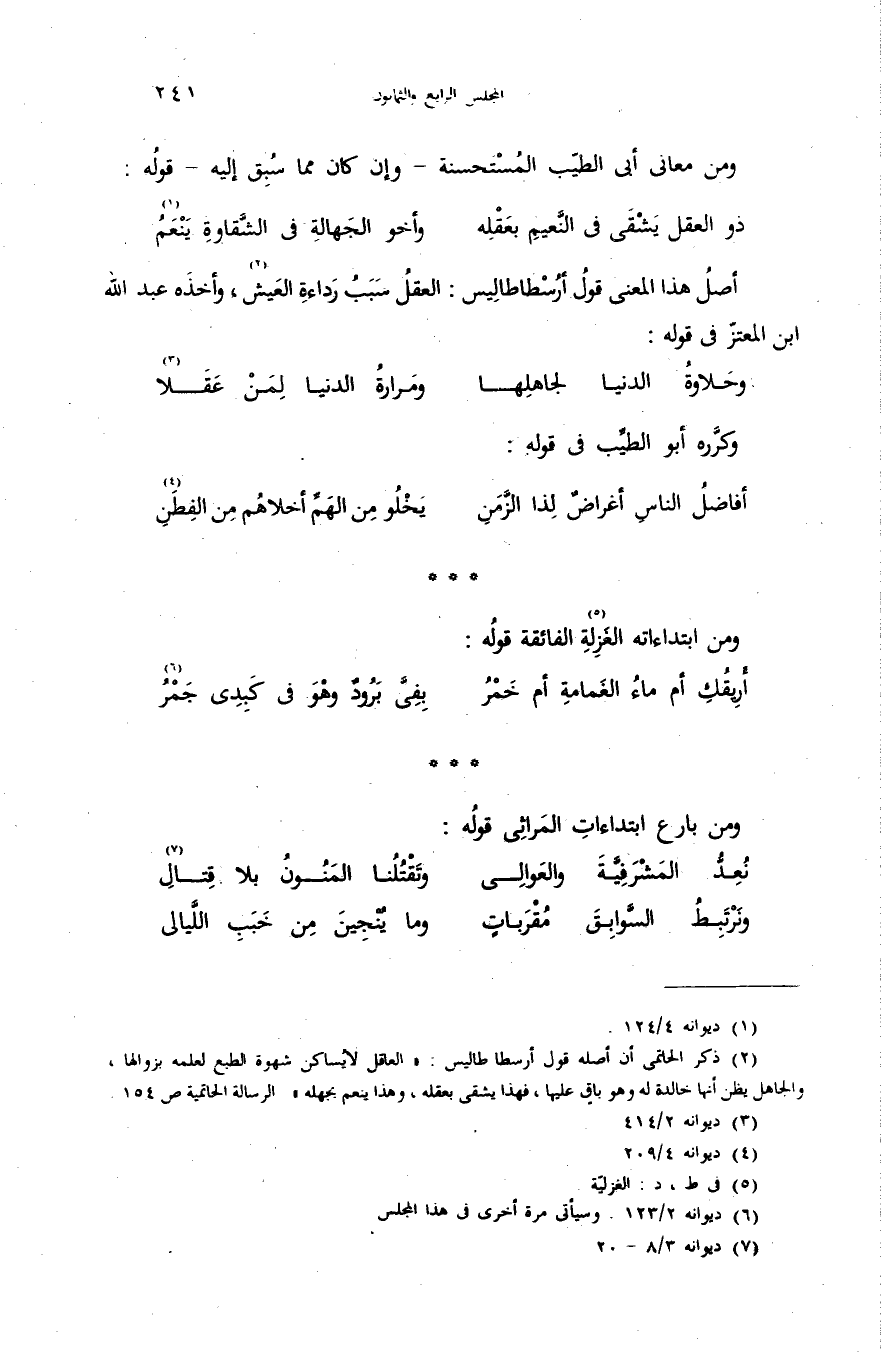 المجلس الرابع والثمانون ٢٤١
ومن معانى أبى الطيّب المُسْتحسنة – وإن كان مما سُبِق إليه – قولُه :
ذو العقل يَشْقَى فى النَّعيمِ بعَقْلِه وأخو الجَهالةِ فى الشَّقاوةِ يَنْعَمُ (١)
أصلُ هذا المعنى قولُ أرُسْطاطالِيس : العقلُ سَبَبُ رَداءةِ العَيش (٢) ، وأخذَه عبد الله
ابن المعتزّ فى قوله :
وحَلاوةُ الدنيا لجاهلِها ومَرارةُ الدنيا لِمَنْ عَقَلا (٣)
وكرَّره أبو الطيِّب فى قوله :
أفاضلُ الناسِ أغراضٌ لِذا الزَّمَنِ يَخْلُو مِن الهَمِّ أخلاهُم مِن الفِطَنِ (٤)
* * *
ومن ابتداءاته الغَزِلةِ (٥) الفائقة قولُه :
أَرِيقُكِ أم ماءُ الغَمامةِ أم خَمْرُ بِفِىَّ بَرُودٌ وهْوَ فى كَبِدِى جَمْرُ (٦)
* * *
ومن بارع ابتداءاتِ المَراثِى قولُه :
نُعِدُّ المَشْرَفِيَّةَ والعَوالِى وتَقْتُلُنا المَنُونُ بلا قِتالِ (٧)
ونَرْتَبِطُ السَّوابِقَ مُقْرَباتٍ وما يُنْجِينَ مِن خَبَبِ اللَّيالى
(١) ديوانه ١٢٤/٤ .
(٢) ذكر الحاتمى أن أصله قول أرسطا طاليس : « العاقل لايُساكن شهوة الطبع لعلمه بزوالها ،
والجاهل يظن أنها خالدة له وهو باق عليها ، فهذا يشقى بعقله ، وهذا ينعم بجهله » الرسالة الحاتمية ص ١٥٤ .
(٣) ديوانه ٤١٤/٢
(٤) ديوانه ٢٠٩/٤
(٥) فى ط ، د : الغزليّة
(٦) ديوانه ١٢٣/٢ . وسيأتى مرة أخرى فى هذا المجلس
(٧) ديوانه ٨/٣ – ٢٠